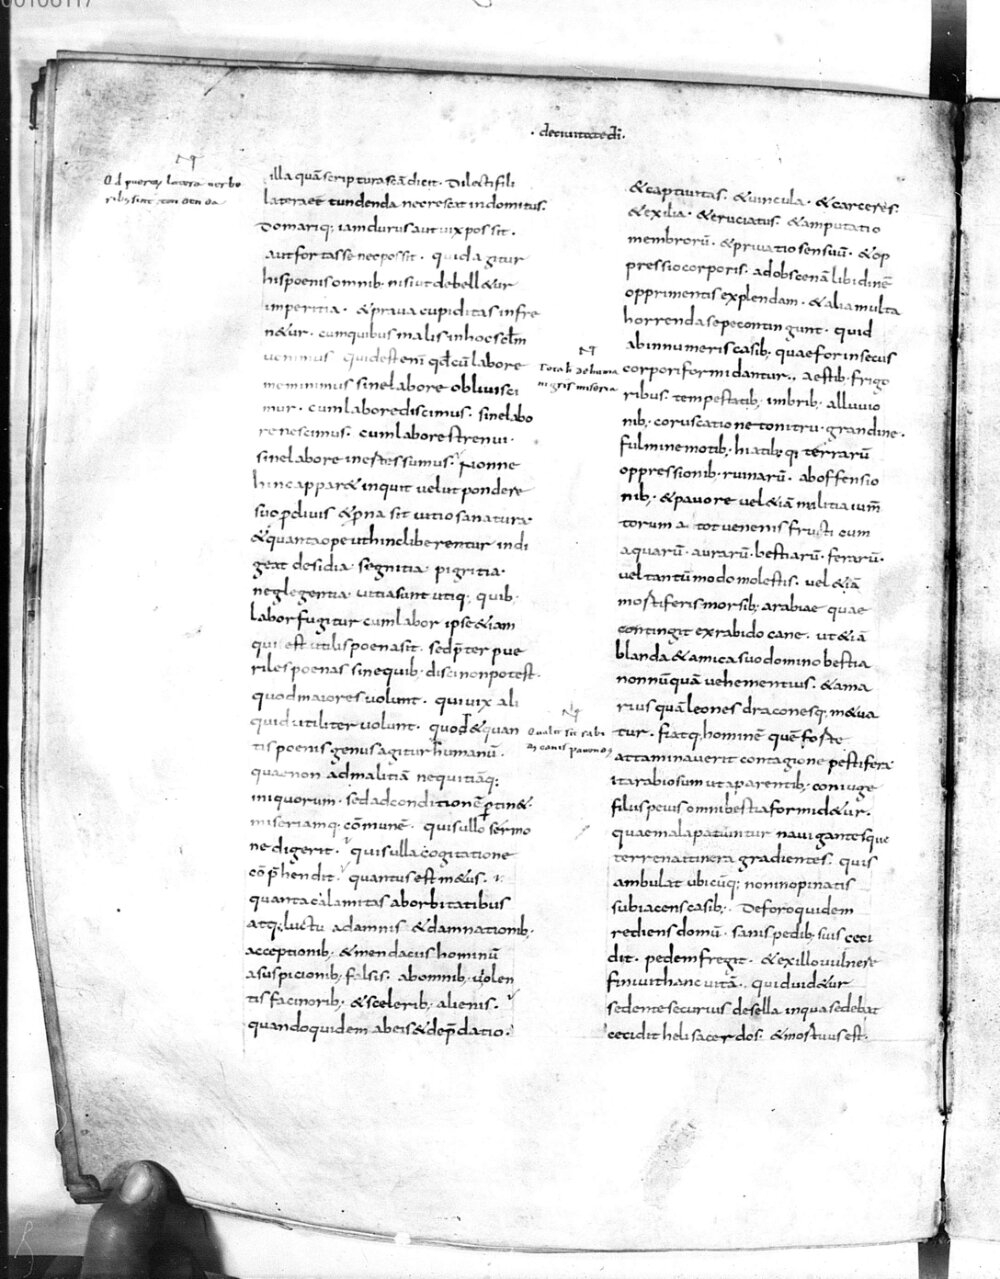 00100117
· decivitatedi ·
N
Qd pueroꝝ latera verbe
ribus sint tondenda
illa quā scriptura scā dicit · Dilecti fili
latera eē tundenda ne crescat indomitus ·
Domariq; iam durus aut vix possit ·
aut fortasse nec possit · quid agitur
his poenis omnib; nisi ut debelletur
imperitia · & prava cupiditas infre
netur · cum quibus malis in hoc sclm
venimus quid est enī qd cū labore
meminimus sine labore oblivisci
mur · cum labore discimus · sine labo
re nescimus · cum labore strenui ·
sine labore inertes sumus · Nonne
hinc apparet inquit velut pondere
suo p̄clivis & p̄na sit vitiosa natura ·
& quanta ope ut hinc liberentur indi
geat desidia segnitia pigritia ·
neglegentia · vitia sunt utiq; quib;
labor fugitur cum labor ipse etiam
qui est utilis poena sit · sed p̄ter pue
riles poenas sine quib; disci non potest ·
quod maiores volunt · qui vix ali
quid utiliter volunt · quod & quan
tis poenis genus agitur humanū ·
quae non ad malitiā nequitiāq;
iniquorum · sed ad conditionē ptinet
miseriamq; cōmunē · quis ullo sermo
ne digerit · quis ulla cogitatione
cōp̄hendit · quantus est metus ·
quanta calamitas ab orbitatibus
atq; luctu a damnis & damnationib; ·
acceptionib; & mendaciis hominū
a suspicionib; falsis · ab omnib; violen
tis facinorib; & scelerib; alienis ·
quandoquidem ab eis & dep̄datio ·
& captivitas · & vincula · & carceres ·
& exilia · & cruciatus · & amputatio
membrorū · & privatio sensuū · & op
pressio corporis · ad obscenā libidinē
opprimentis explendam · & alia multa
horrenda sepe contingunt · quid
ab innumeris casib; quae forinsecus
N
corpori formidantur · aestib; frigo
ribus tempestatib; imbrib; alluvio
nib; coruscatione tonitru · grandine ·
fulmine motib; hiatib; q; terrarū
oppressionib; ruinarū · ab offensio
nib; & pavore vel etiā malitia ium̄
torum a tot venenis fructi cum
aquarū · aurarū · bestiarū · ferarū ·
vel tantūmodo molestis · vel etiā
mostiferis morsib; a rabiae quae
contingit ex rabido cane · ut etiā
blanda & amica suo domino bestia
nonnūquā vehementius · & ama
rius quā leones draconesq; metua
N
Qualis sit rabi
di canis pavendꝰ
tur · fiatq; hominē quē foste
attaminaverit contagione pestifera
ita rabiosum ut a parentib; coniuge
filiis peius omni bestia formidetur ·
quae mala patiuntur navigantes que
terrena itinera gradientes · quis
ambulat ubicūq; non inopinatis
subiacens casib; · De foro quidem
rediens domū · sanis pedib; suis ceci
dit · pedem fregit · & ex illo vulnere
finivit hanc vitā · quid videtur
sedente securius de sella in qua sedebat
cecidit heli sacerdos · & mostuus est ·